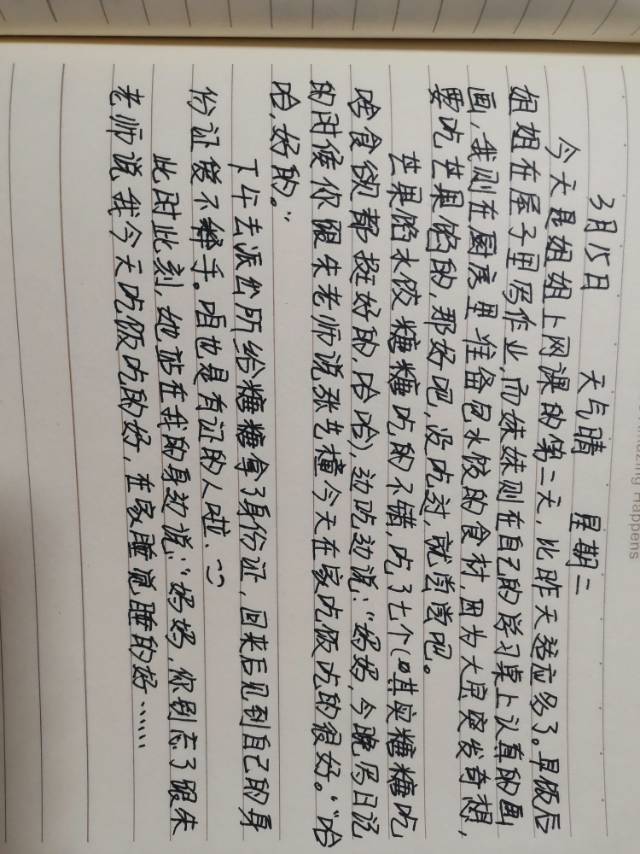 3月15日 天气晴 星期二
今天是姐姐上网课的第二天,比昨天适应多了。早饭后
姐姐在屋子里写作业,而妹妹则在自己的学习桌上认真的画
画,我则在厨房里准备包水饺的食材,因为大宝突发奇想,
要吃芒果馅的,那好吧,没吃过,就尝尝吧。
芒果馅水饺糖糖吃的不错,吃了七个(其实糖糖吃
啥食欲都挺好的,哈哈),边吃边说:“妈妈,今晚写日记
的时候你跟朱老师说张艺橦今天在家吃饭吃的很好。”哈
哈,好的。”
下午去派出所给糖糖拿了身份证,回来后见到自己的身
份证爱不释手。咱也是有证的人啦.
此时此刻,她站在我的身边说:“妈妈,你别忘了跟朱
老师说我今天吃饭吃的好,在家睡觉睡的好……
Amazing Happens